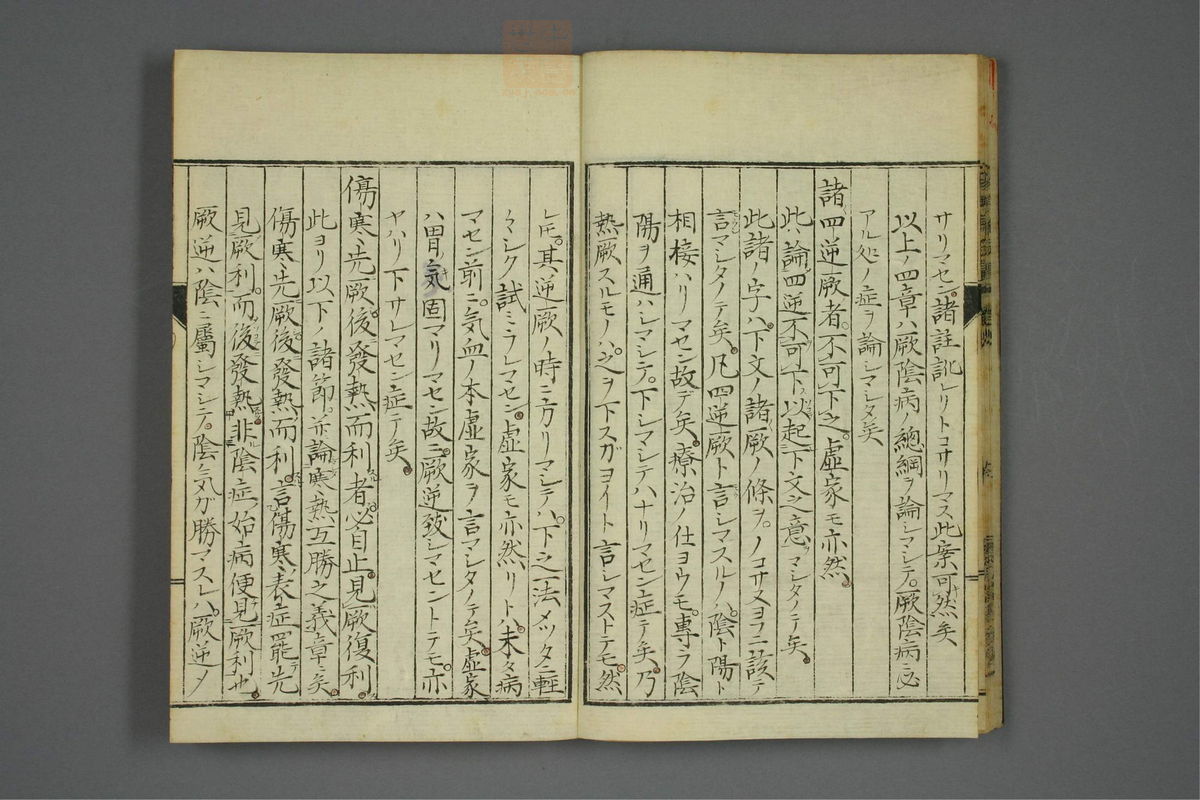 サリマセン。諸註訛レリトコサリマス此案可然矣
以上ノ四章ハ厥陰病ノ總綱ヲ論シマシテ。厥陰病ニ必
アル処ノ症ヲ論シマシタ矣
諸四逆厥者。不可下之。虚家モ亦然。
此ハ論四逆不可下以起下文之意ヲマシタノテ矣。
此諸ノ字ハ。下文ノ諸厥ノ條ヲ。ノコサヌヨフニ該テ
言マシタノテ矣。凡四逆厥ト言シマスルノハ。陰ト陽ト
相接ハリマセン故デ矣。療治ノ仕ヨウモ。專ラ陰
陽ヲ通ハシマシテ。下シマシテハナリマセン症テ矣。乃
熱厥スルモノハ。之ヲ下スガヨイト言シマストテモ。然
レ𪜈。其逆厥ノ時ニ方リマシテハ。下之一法メツタニ輕
クシク試ミラレマセン。虚家モ亦然リトハ。未タ病
マセン前ニ。気血ノ本虚家ヲ言マシタノテ矣。虚家
ハ胃ノ気固マリマセン故ニ。厥逆致シマセントテモ。亦
ヤハリ下サレマセン症テ矣。
傷寒先厥後發熱而利者。必自止見厥復利。
此ヨリ以下ノ諸節。亦論寒熱互勝之義章ニ矣。
傷寒先厥後發熱而利。言傷寒表症罷テ先
見厥利。而後發熱。非陰症始病便見厥利也。
厥逆ハ陰ニ屬シマシテ。陰気ガ勝マスレハ。厥逆ノ